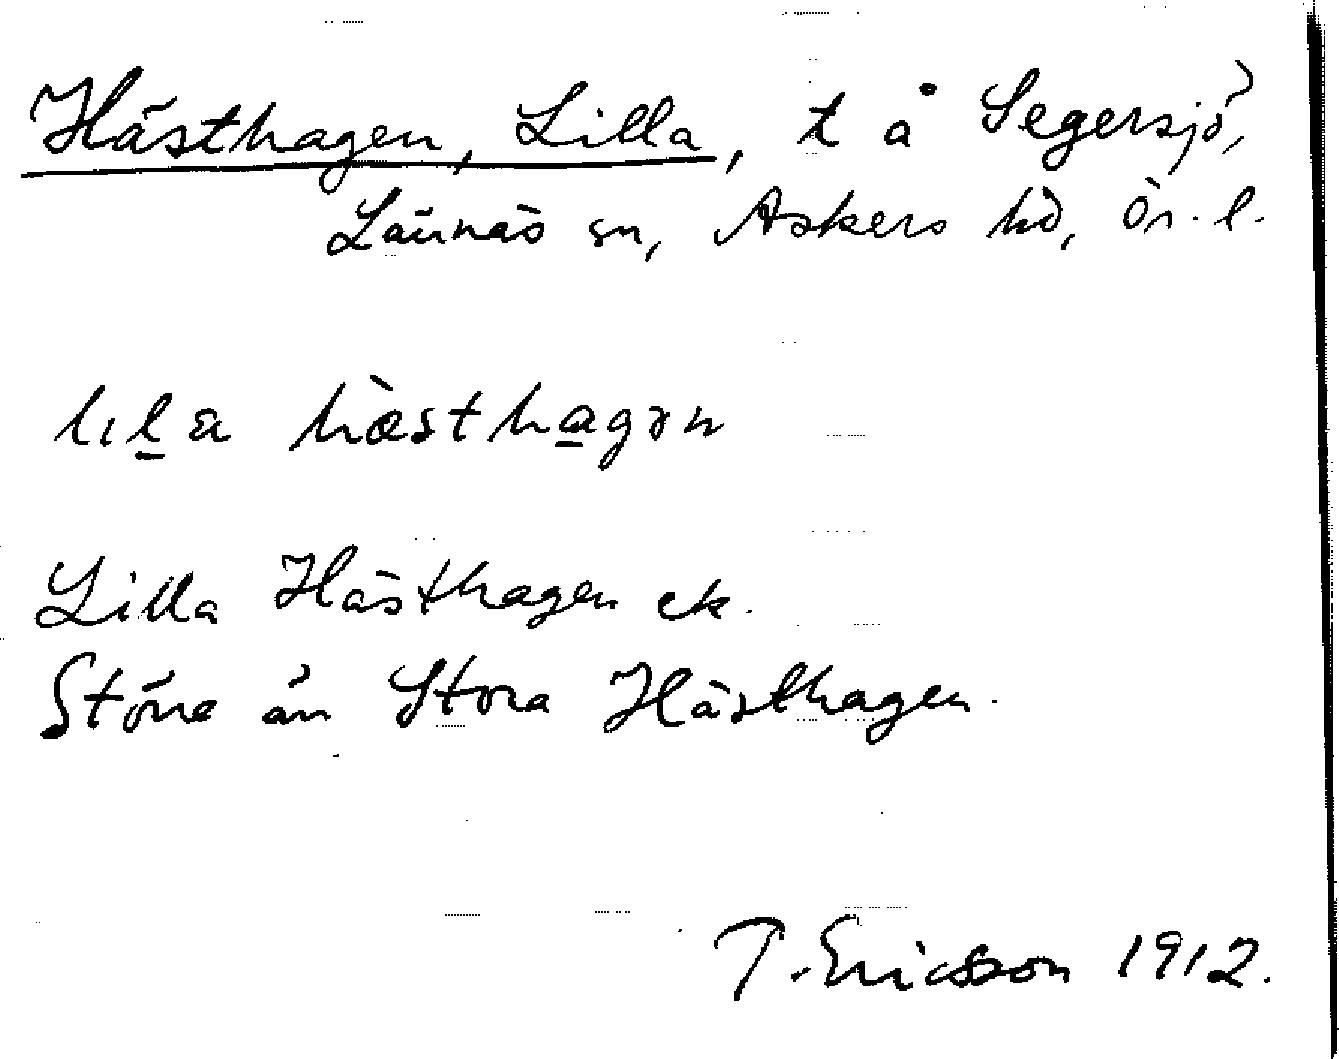 Hästhagen, Lilla, t å Segersjö,
Lännäs sn, Askers hd, Ör. l.
lıla hæsthagən
Lilla Hästhagen ek.
Större än Stora Hästhagen.
T. Ericsson 1912.